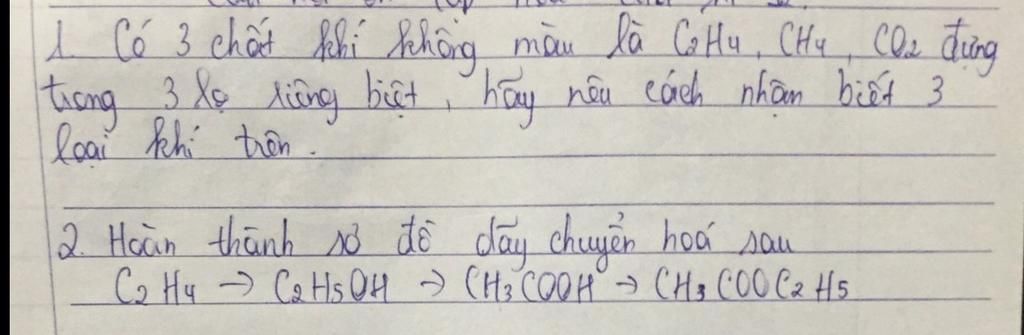 1. Có 3 chất khí không màu là C2H4, CH4, CO2 đựng
trong 3 lọ riêng biệt, hãy nêu cách nhận biết 3
loại khí trên.
2. Hoàn thành sơ đồ dãy chuyển hoá sau
C2H4 → C2H5OH → CH3COOH → CH3COOC2H5